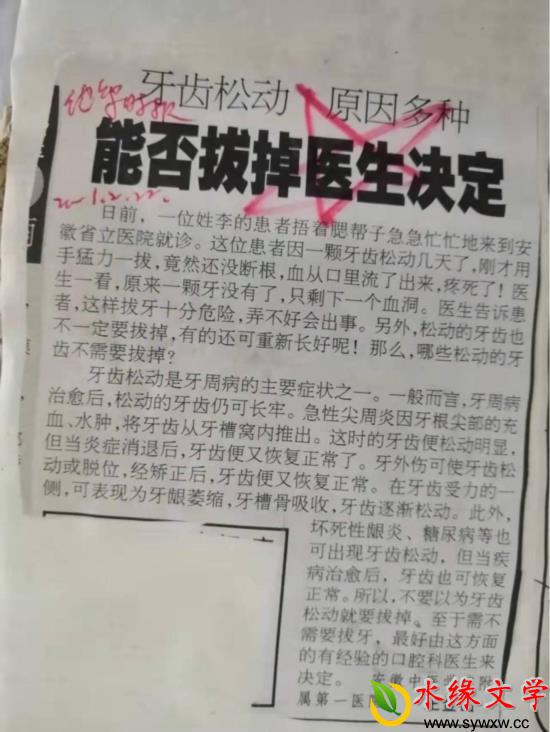 牙齿松动 原因多种
能否拔掉医生决定
日前，一位姓李的患者捂着腮帮子急急忙忙地来到安
徽省立医院就诊。这位患者因一颗牙齿松动几天了，刚才用
手猛力一拔，竟然还没断根，血从口里流了出来，疼死了！医
生一看，原来一颗牙没有了，只剩下一个血洞。医生告诉患
者，这样拔牙十分危险，弄不好会出事。另外，松动的牙齿也
不一定要拔掉，有的还可重新长好呢！那么，哪些松动的牙
齿不需要拔掉？
牙齿松动是牙周病的主要症状之一。一般而言，牙周病
治愈后，松动的牙齿仍可长牢。急性尖周炎因牙根尖部的充
血、水肿，将牙齿从牙槽窝内推出。这时的牙齿便松动明显，
但当炎症消退后，牙齿便又恢复正常了。牙外伤可使牙齿松
动或脱位，经矫正后，牙齿便又恢复正常。在牙齿受力的一
侧，可表现为牙龈萎缩，牙槽骨吸收，牙齿逐渐松动。此外，
坏死性龈炎、糖尿病等也
可出现牙齿松动，但当疾
病治愈后，牙齿也可恢复
正常。所以，不要以为牙齿
松动就要拔掉。至于需不
需要拔牙，最好由这方面
的有经验的口腔科医生来
决定。 安徽中医学院附
属第一医院
水缘文学
www.sywxw.cc